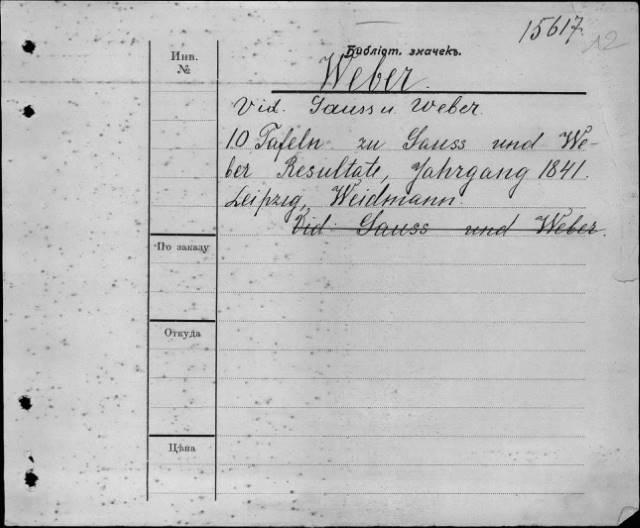 15617.
Библіот. значекъ.
Инв.
№
Weber.
Vid. Gauss u. Weber.
10 Tafeln zu Gauss und We-
ber Resultate, Jahrgang 1841.
Leipzig, Weidmann.
Vid. Gauss und Weber.
По заказу
Откуда
Цѣна